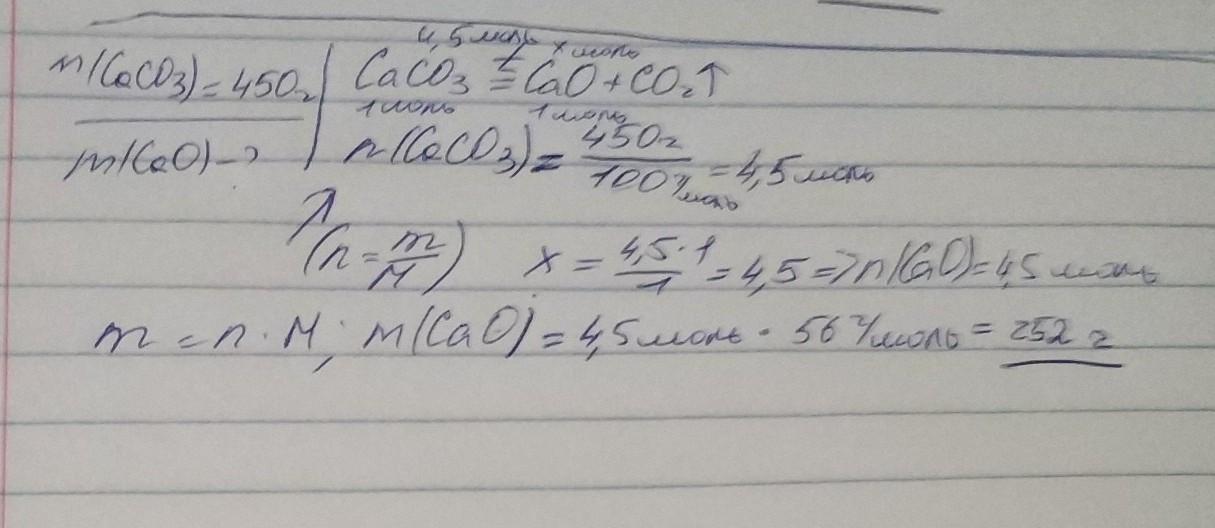 m(CaCO₃) = 450г
m(CaO) - ?
4,5 моль x моль
CaCO₃ t= CaO + CO₂↑
1 моль 1 моль
n(CaCO₃) = 450г / 100 г/моль = 4,5 моль
↗
(n = m/M) x = 4,5 · 1 / 1 = 4,5 => n(CaO) = 4,5 моль
m = n · M; m(CaO) = 4,5 моль · 56 г/моль = 252 г